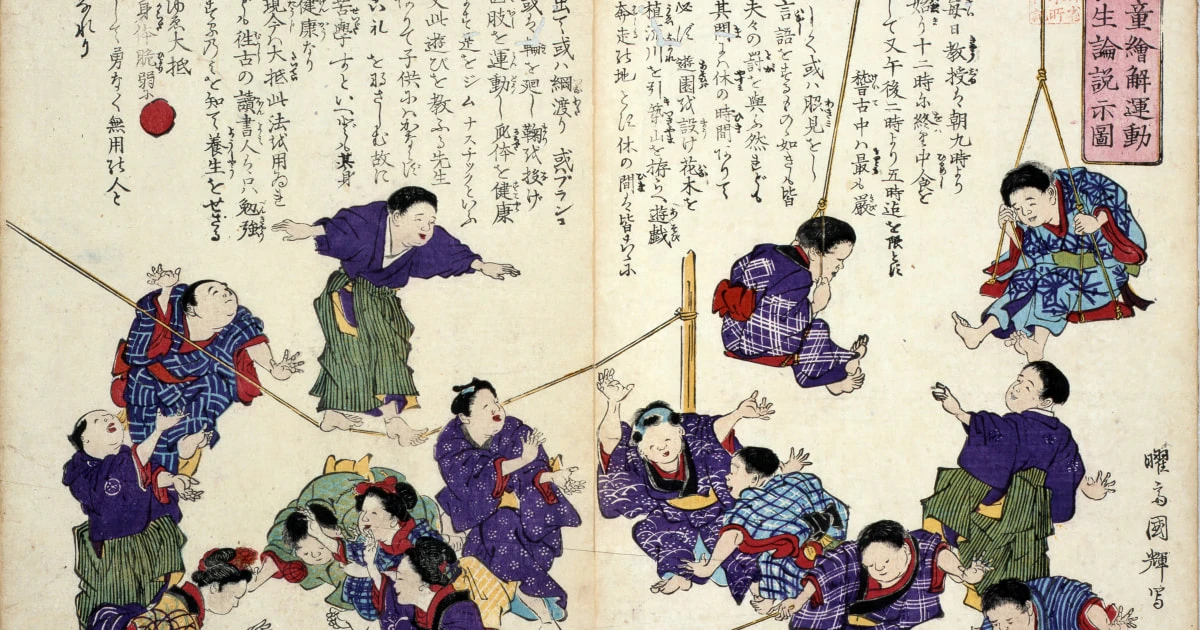 童繪解運動
生論説示圖
毎日教授ハ朝九時より
始り十二時に終り中食を
して又午後二時より五時迄を限とす
稽古中ハ最も厳
しく或ハ脇見をし
言語をするもの如きも皆
夫々の罰を與ふ然れども
其間休の時間ありて
必ず遊園を設け花木を
植流川を引築山を拵らへ遊戯
奔走の地とす休の間ハ皆こゝに
出て或ハ綱渡り或ブランコ
或ハ を廻し鞠を投げ
四肢を運動し 体を健康
す是をジムナスチックといふ
又此遊びを教ふる先生
ありて子供に
礼を なさしむ故に
苦學すといへども其身
健康なり
現今大抵此法を用ゐれ
ども往古の讀書人ハ只勉強
するのみを知て養生をせざる
ゆゑ大抵
身体脆弱に
して勇なく無用の人と
なれり
曜斎國輝写